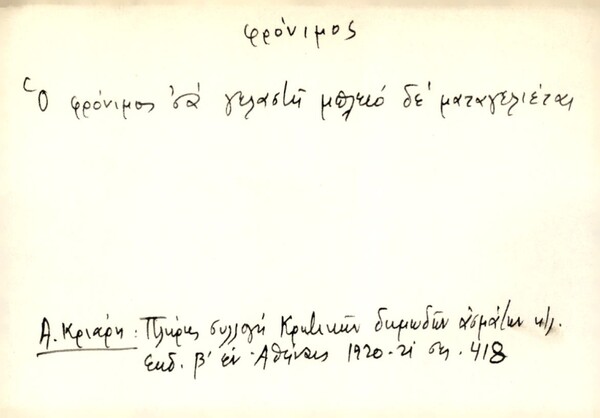 φρόνιμος
Ὁ φρόνιμος 'σὰ γελαστῆ μπλειό δὲ ματαγελιέται
Α. Κριάρη: Πλήρης συλλογή Κρητικῶν δημωδῶν ἀσμάτων κ/λ.
Εκδ. β' ἐν Ἀθήναις 1920-21 σ. 418